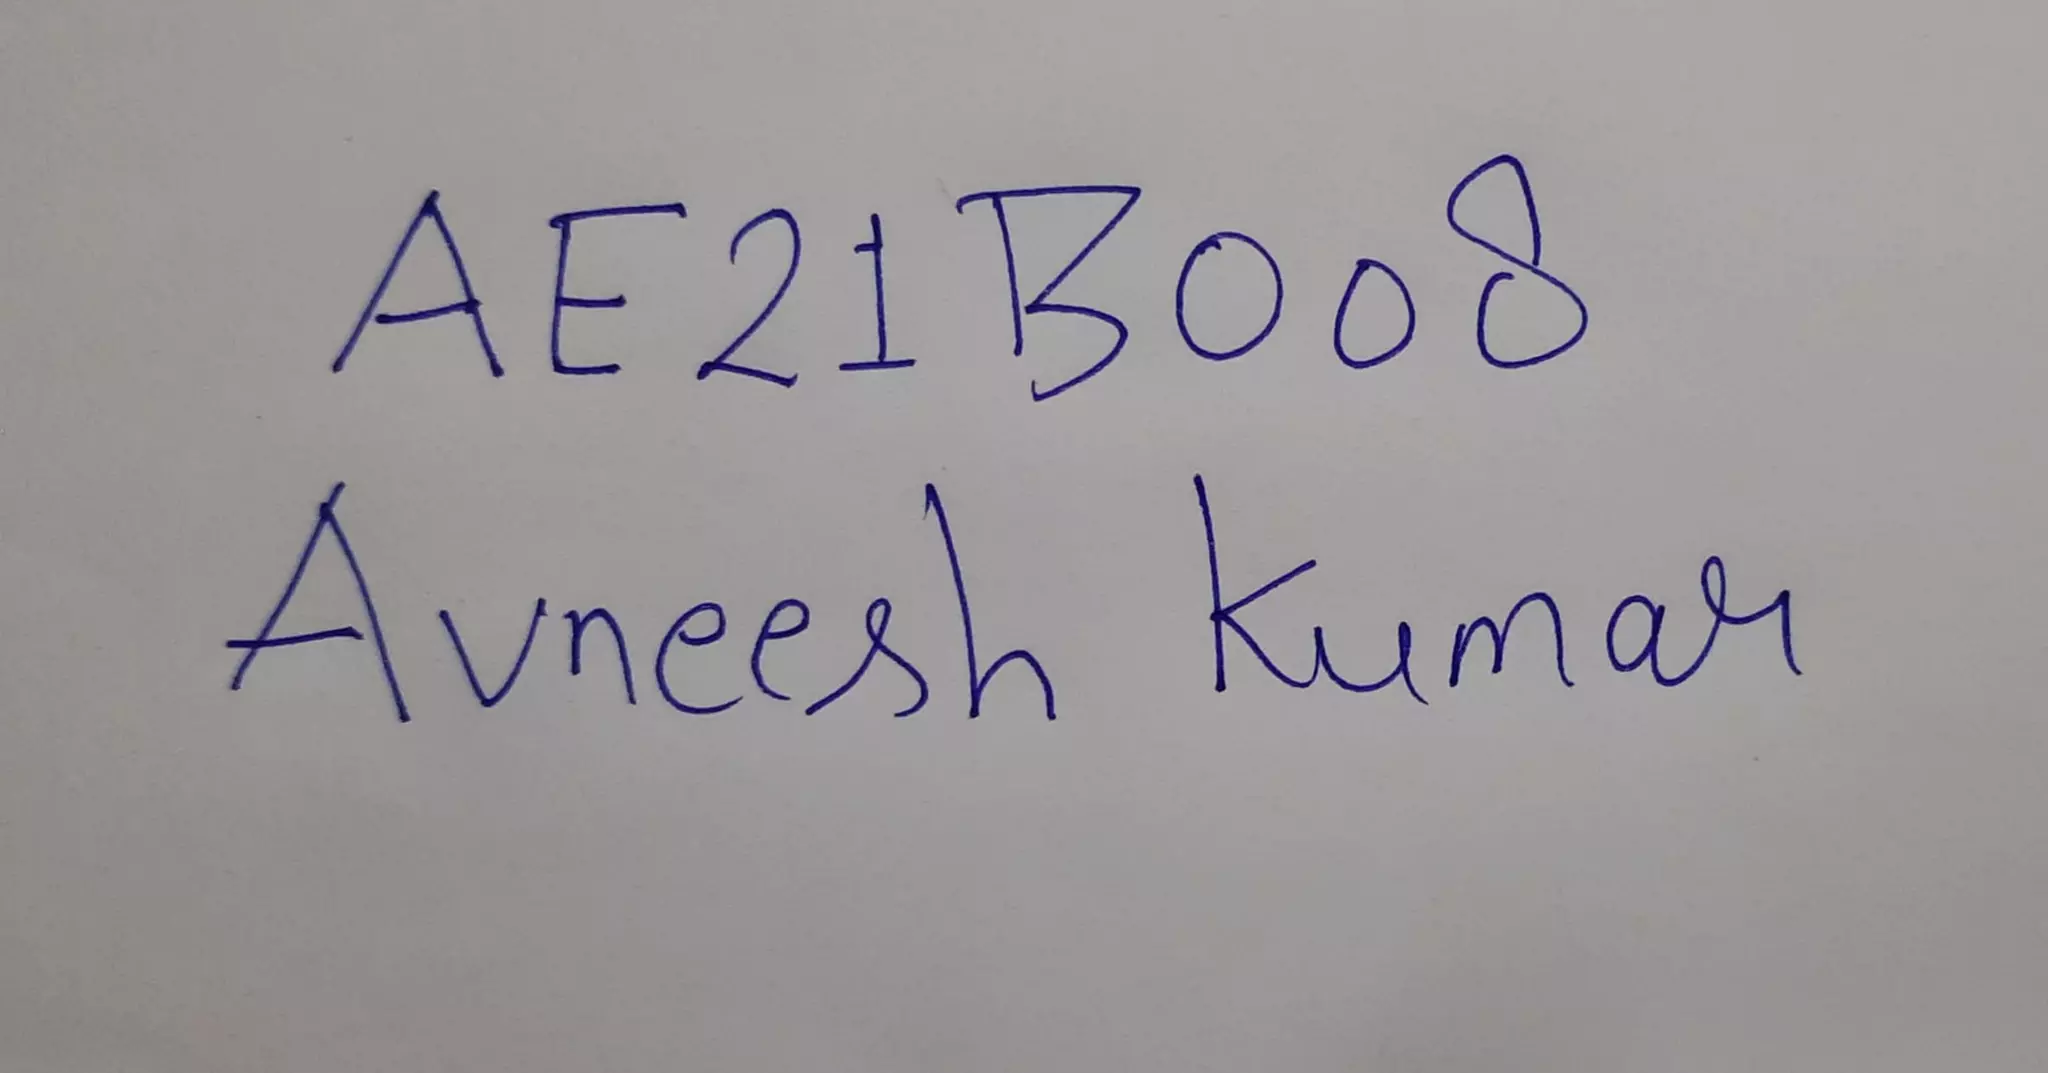 AE21B008
Avneesh Kumar